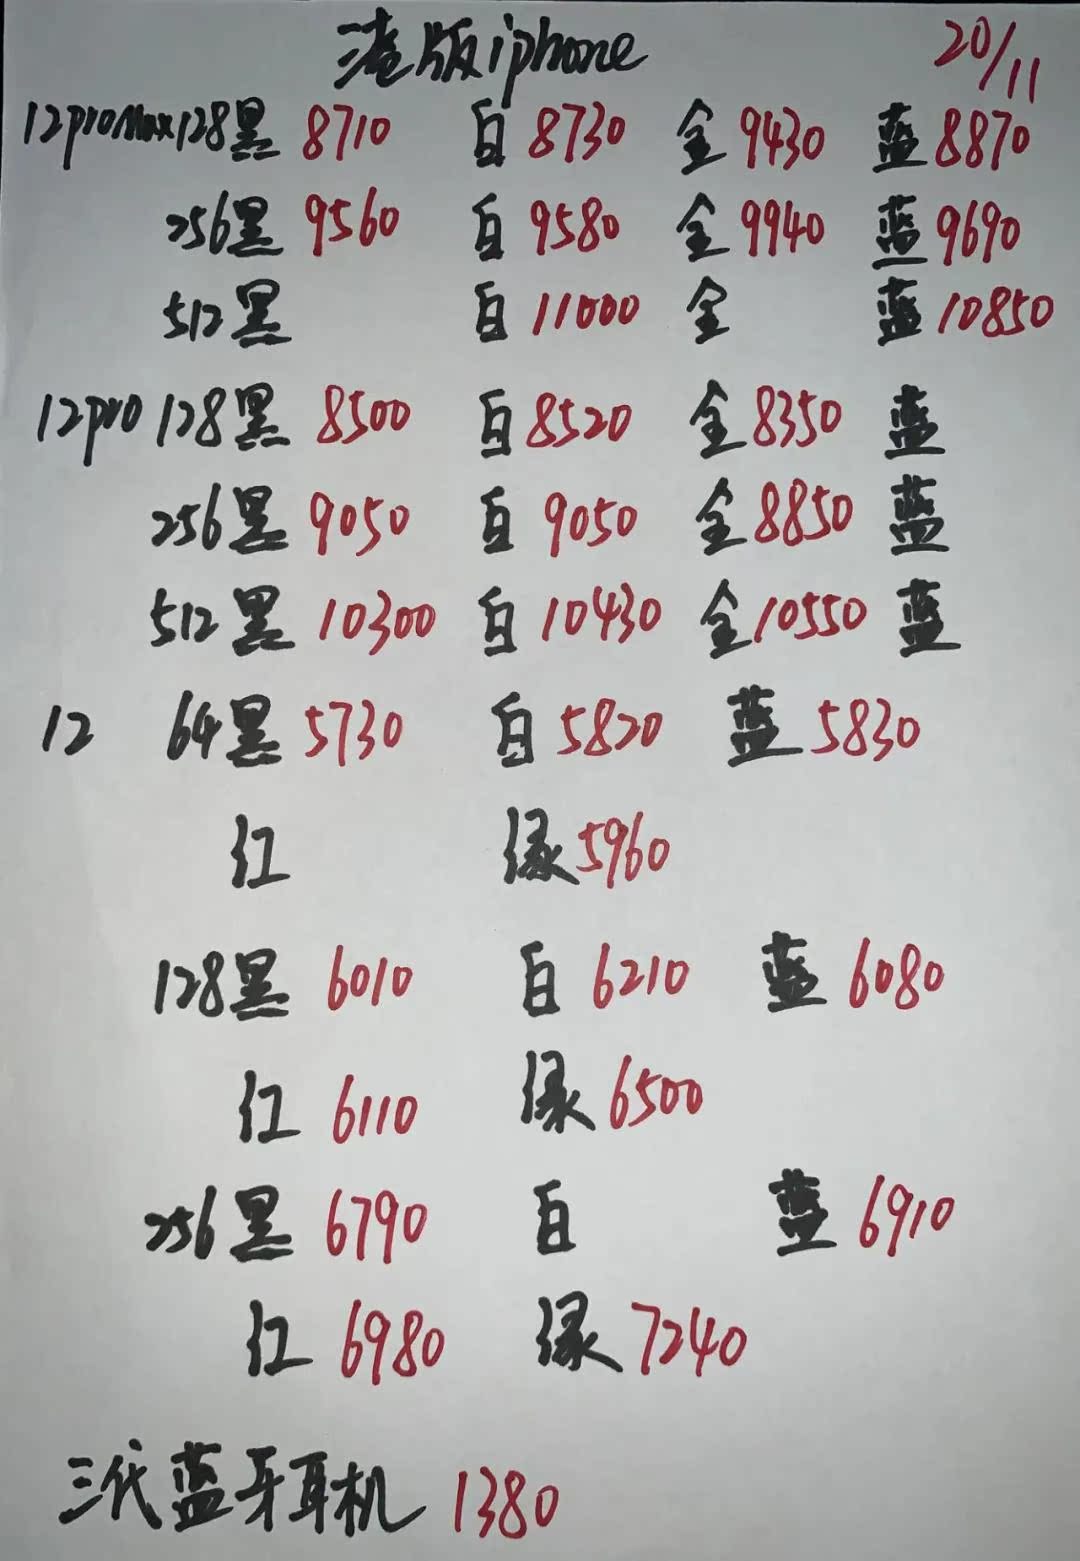 港版iphone 20/11
12proMax128黑 8710 白 8730 金 9430 蓝 8870
256黑 9560 白 9580 金 9940 蓝 9690
512黑 白 11000 金 蓝 10850
12pro 128黑 8500 白 8520 金 8350 蓝
256黑 9050 白 9050 金 8850 蓝
512黑 10300 白 10430 金 10550 蓝
12 64黑 5730 白 5820 蓝 5830
红 绿 5960
128黑 6010 白 6210 蓝 6080
红 6110 绿 6500
256黑 6790 白 蓝 6910
红 6980 绿 7240
三代蓝牙耳机 1380